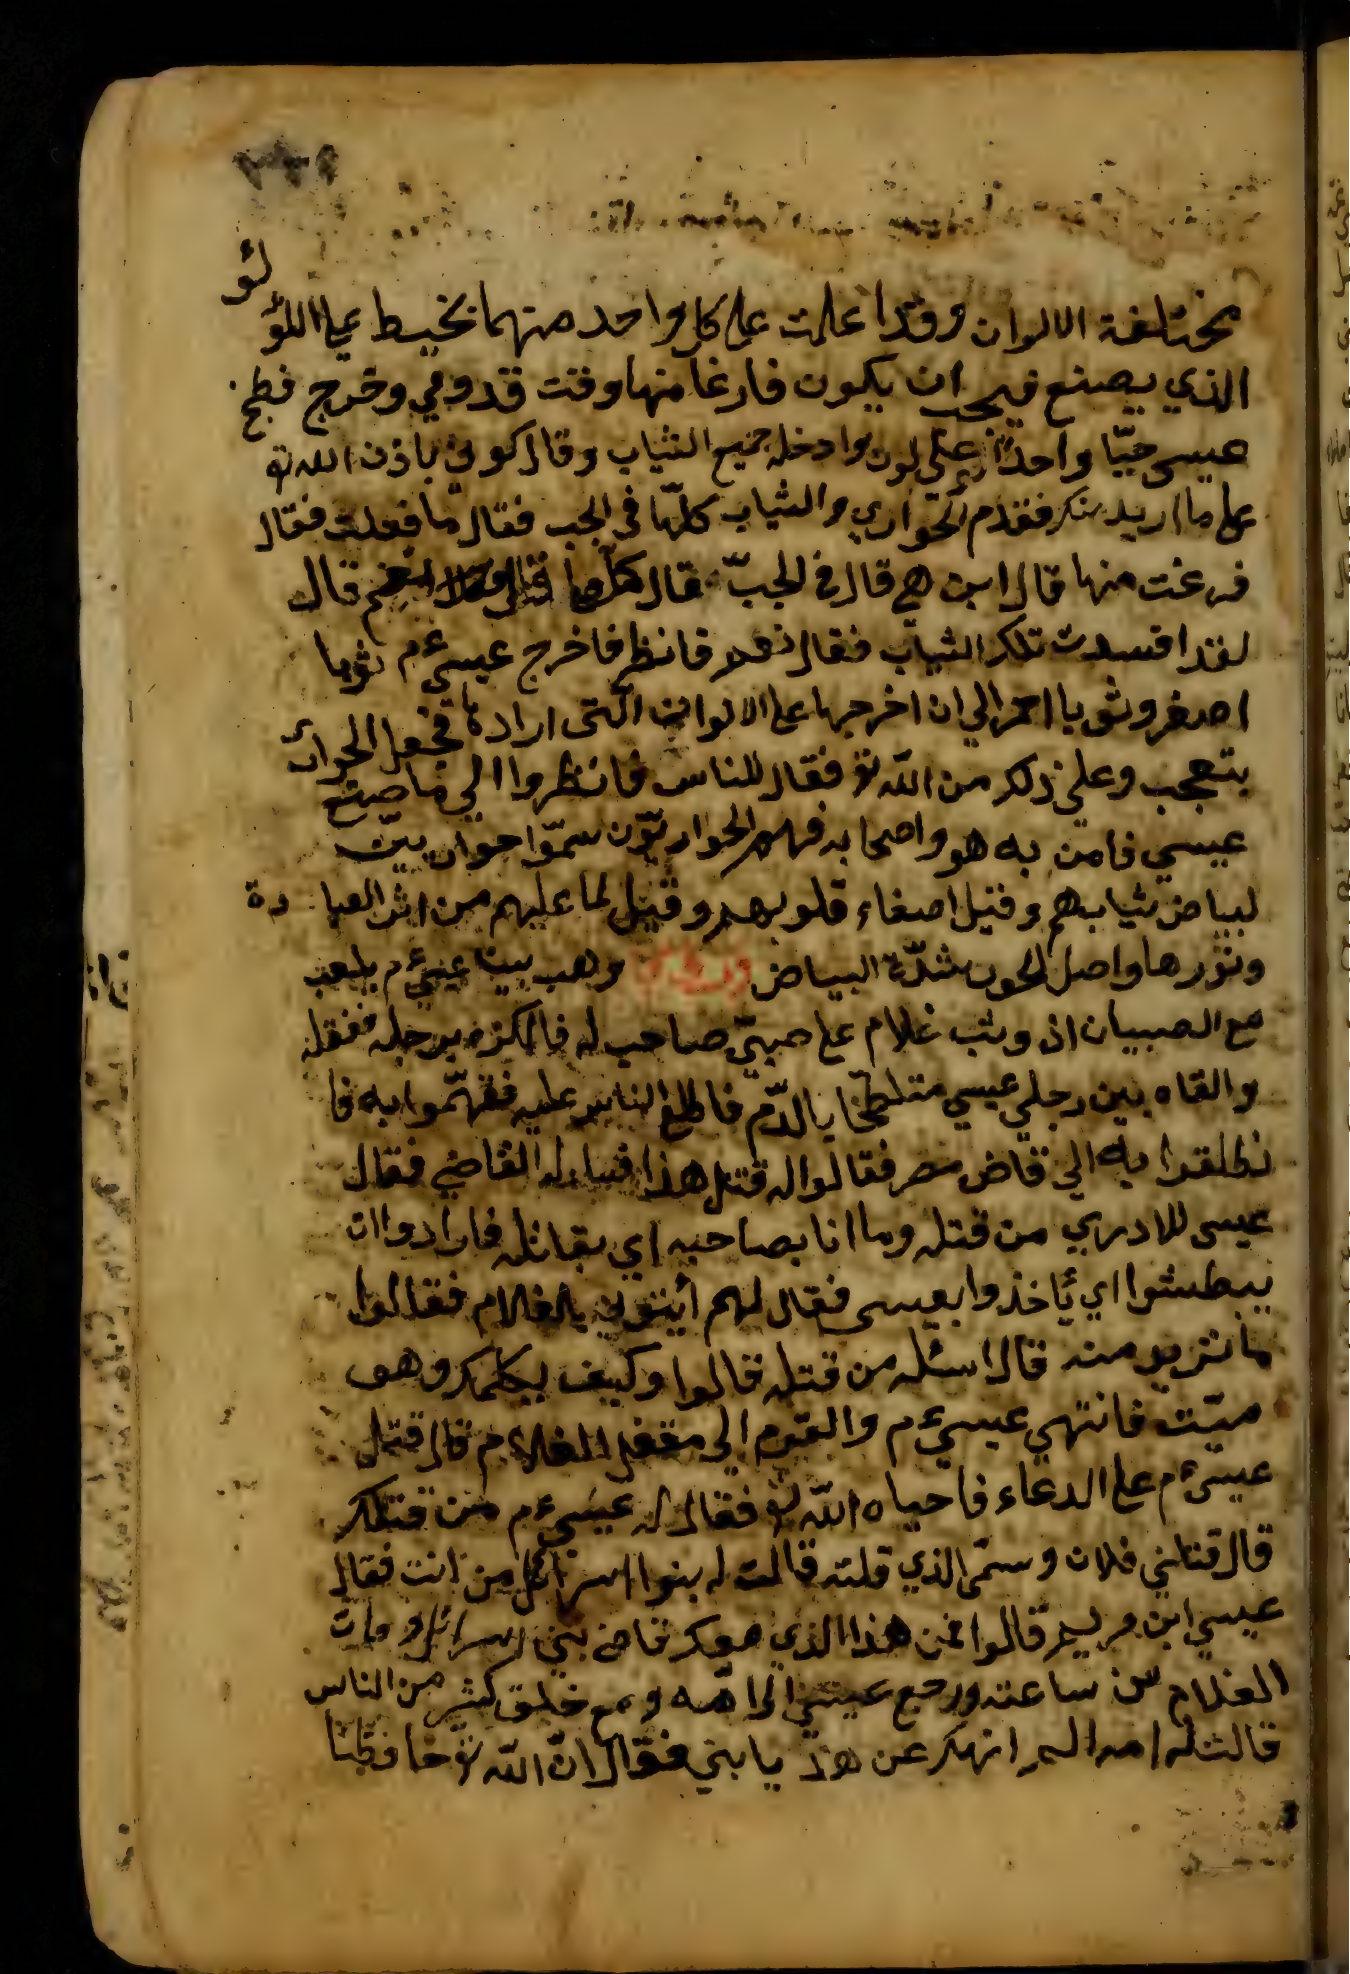 مختلفة الالوان وقد اعلمت على كل واحد منهما بخيط على اللؤ لئو
الذي يصنع فيجب ان يكون فارغا منها وقت قدومي وخرج فطبخ
عيسى حبّا واحدا على لون وادخله جميع الثياب وقال كوني باذن الله تع
على ما اريد منك فقدم الحواري والثياب كلّها في الجب فقال ما فعلت فقال
فرغت منها قال اين هي قال في الجبّ فقال كلّها قال نعم قال
لقد افسدت تلك الثياب فقال نعم فانظر فاخرج عيسى عم ثوبا
اصفر وثوبا احمر الي ان اخرجها على الالوان الّتى ارادها فجعل الحوارى
يتعجب وعلم ذلك من اللّه تع فقال للناس فانظروا الي ما صنع
عيسي فامن به هو واصحابه فهم الحواريّون سمّوا حواريين
لبياض ثيابهم وقيل اصغاء قلوبهم وقيل لما عليهم من اثر العبا دة
ونورها واصل الحور شدّة البياض وهب بينا عيسى عم يلعب
مع الصبيان اذ وثب غلام على صبيّ صاحب له فالكزه برجله فقتله
والقاه بين رجلي عيسي متلطّخا بالدّم فاطلع الناس عليه فتهّموا به فا
نطلقوا به الي قاض مصر فقالوا له قتل هذا فساله القاضي فقال
عيسى للادري من قتله وما انا بصاحبه اي بقاتله فارادوا ان
يبطشوا اي ياخذوا بعيسى فقال لهم أيتوني بالغلام فقالوا
ما تريد منه قال اسئله من قتله قالوا وكيف يكلمك وهو
ميّت فانتهي عيسى عم والقوم الي مقتل الغلام قال قتل
عيسى عم على الدعاء فاحياه اللّه تع فقال له عيسى عم من قتلك
قال قتلني فلان وسمّى الذي قلته قالت له بنوا اسرائل من انت فقال
عيسي ابن مريم قالوا فمن هذا الذي معك قاض بني اسرائل ومات
الغلام من ساعته ورجع عيسى الى امّه ومع خلق كثير من الناس
قالت له امه الم انهك عن هذ يا بني فقال انّ اللّه تع حافظنا